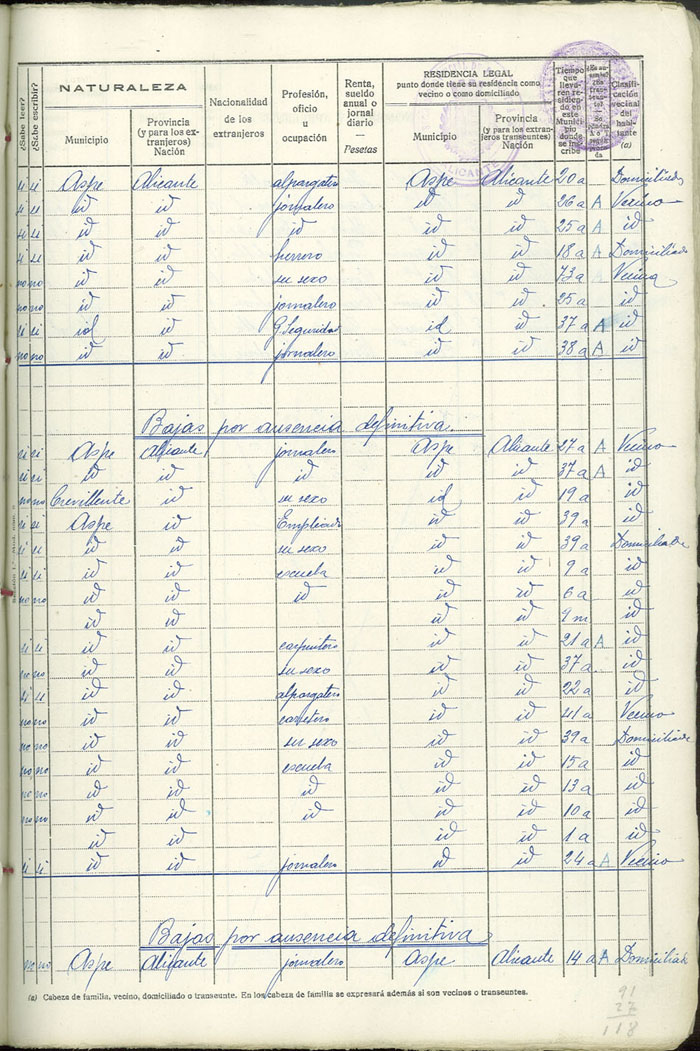 ¿Sabe leer? ¿Sabe escribir? NATURALEZA Municipio Provincia (y para los extranjeros) Nación Nacionalidad de los extranjeros Profesión, oficio u ocupación Renta, sueldo anual o jornal diario — Pesetas RESIDENCIA LEGAL punto donde tiene su residencia como vecino o como domiciliado Municipio Provincia (y para los extranjeros transeuntes) Nación Tiempo que llevaren residiendo en este Municipio donde se inscribe Clasificación vecinal del habitante (a)
si si Aspe Alicante alpargatero Aspe Alicante 20 a Domiciliado
si si id id jornalero id id 26 a A Vecino
si si id id id id id 25 a A id
si si id id herrero id id 18 a A Domiciliado
no no id id su sexo id id 73 a Vecina
no no id id jornalero id id 25 a id
si si id id G. Seguridad id id 37 a A id
no no id id jornalero id id 38 a A id
Bajas por ausencia definitiva
si si Aspe Alicante jornalero Aspe Alicante 27 a A Vecino
si si id id id id id 37 a A id
no no Crevillente id su sexo id id 19 a id
si si Aspe id Empleado id id 39 a id
si si id id su sexo id id 39 a Domiciliada
si si id id escuela id id 9 a id
no no id id id id id 6 a id
id id id id 9 m id
si si id id carpintero id id 21 a A id
no no id id su sexo id id 37 a id
si si id id alpargatero id id 22 a id
no no id id carretero id id 41 a Vecino
no no id id su sexo id id 39 a Domiciliada
no no id id escuela id id 15 a id
no no id id id id id 13 a id
no no id id id id id 10 a id
id id id id 1 a id
si si id id jornalero id id 24 a A Vecino
Bajas por ausencia definitiva
no no Aspe Alicante jornalero Aspe Alicante 14 a A Domiciliado
(a) Cabeza de familia, vecino, domiciliado o transeunte. En los cabeza de familia se expresará además si son vecinos o transeuntes.
91
27
118